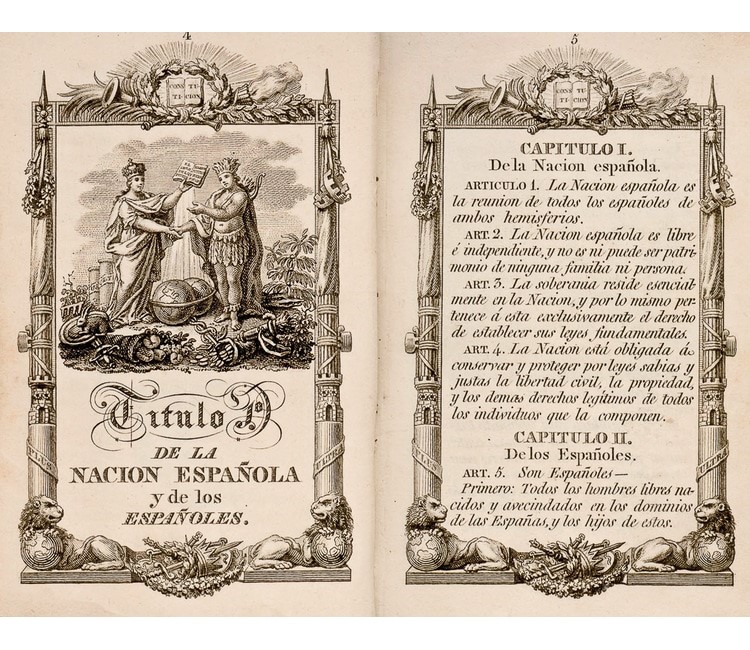 4
CONS TU-
TI- CION
Titulo 1º
DE LA
NACION ESPAÑOLA
y de los
ESPAÑOLES.
PLUS ULTRA
5
CONS TU-
TI- CION
CAPITULO I.
De la Nacion española.
ARTICULO 1. La Nacion española es
la reunion de todos los españoles de
ambos hemisferios.
ART. 2. La Nacion española es libre
é independiente, y no es ni puede ser patri
monio de ninguna familia ni persona.
ART. 3. La soberania reside esencial
mente en la Nacion, y por lo mismo per-
tenece á esta exclusivamente el derecho
de establecer sus leyes fundamentales.
ART. 4. La Nacion está obligada á
conservar y proteger por leyes sabias y
justas la libertad civil, la propiedad,
y los demas derechos legítimos de todos
los individuos que la componen.
CAPITULO II.
De los Españoles.
ART. 5. Son Españoles—
Primero: Todos los hombres libres na-
cidos y avecindados en los dominios
de las Españas, y los hijos de estos.
PLUS ULTRA